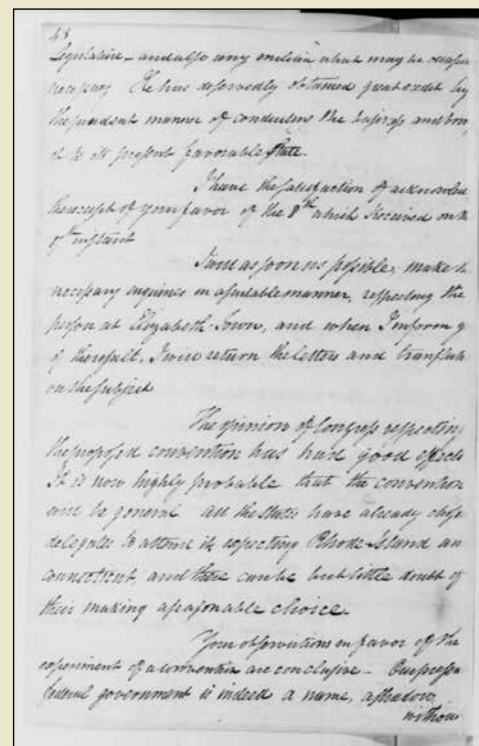 48
Legislature - and also any militia what may be
necessary He has deservedly obtained great credit by
the prudent manner of conducting the business and
it to its present favorable State.
I have the satisfaction of
the receipt of your favor of the 8th which I received on
instant
I will as soon as possible, make
necessary inquiries in a suitable manner, respecting the
person at Elizabeth Town, and when I inform
of the result, I will return the letters and
on the subject
The opinion of Congress respecting
the proposed convention has had good effects
It is now highly probable that the convention
will be general all the States have already chose
delegates to attend it excepting Rhode Island an
connecticut, and there can be but little doubt of
their making a seasonable choice.
Your observations in favor of the
experiment of a convention are conclusive - Our presen
federal government is indeed a name, a shadow,
withou